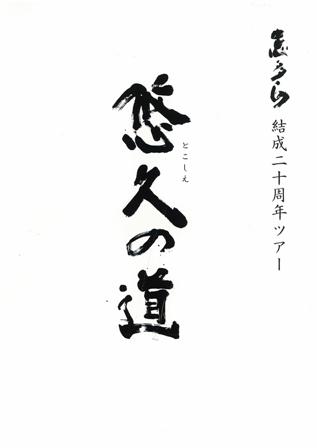 志多ら 結成二十周年ツアー
とこしえ
悠久の道